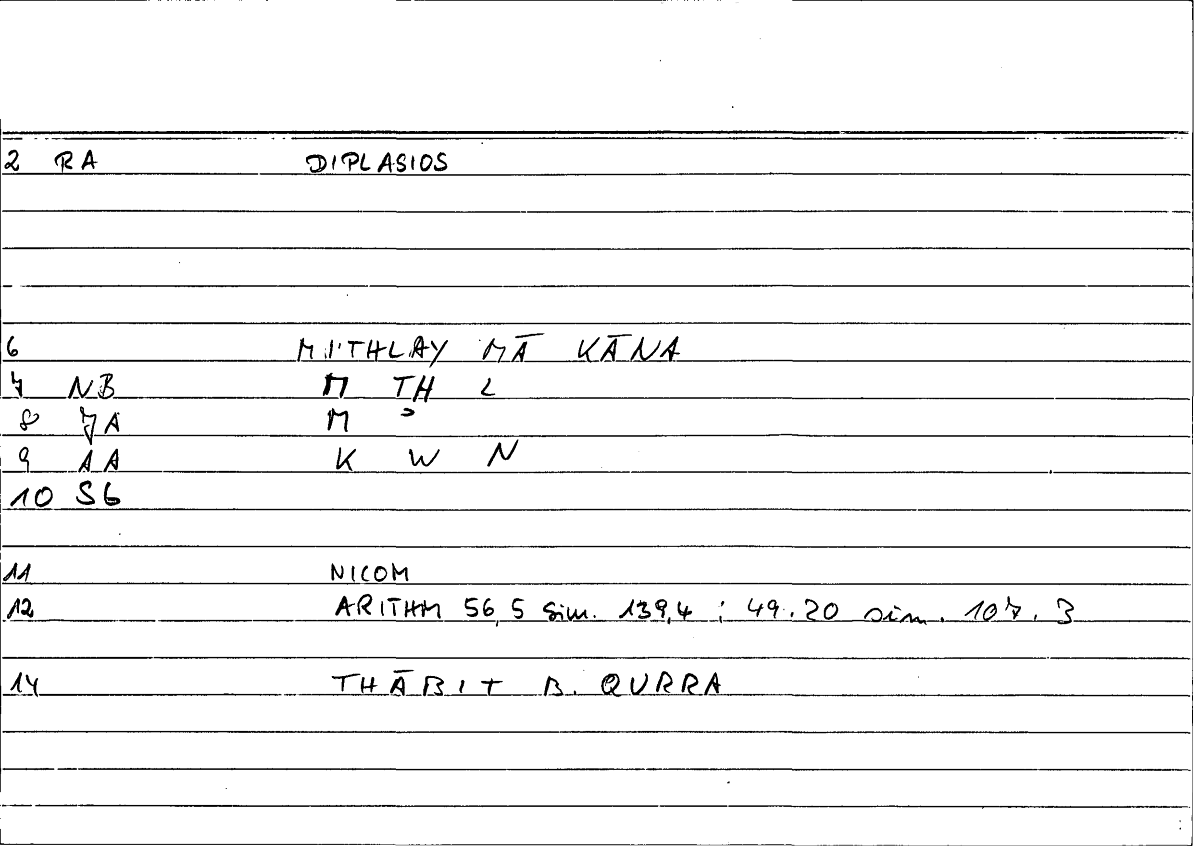 2 RA DIPLASIOS
6 MITHLAY MĀ KĀNA
7 NB M TH L
8 JA M ɔ
9 AA K W N
10 S6
11 NICOM
12 ARITHM 56,5 sim. 139,4 ; 49.20 sim. 107.3
14 THĀBIT B. QURRA